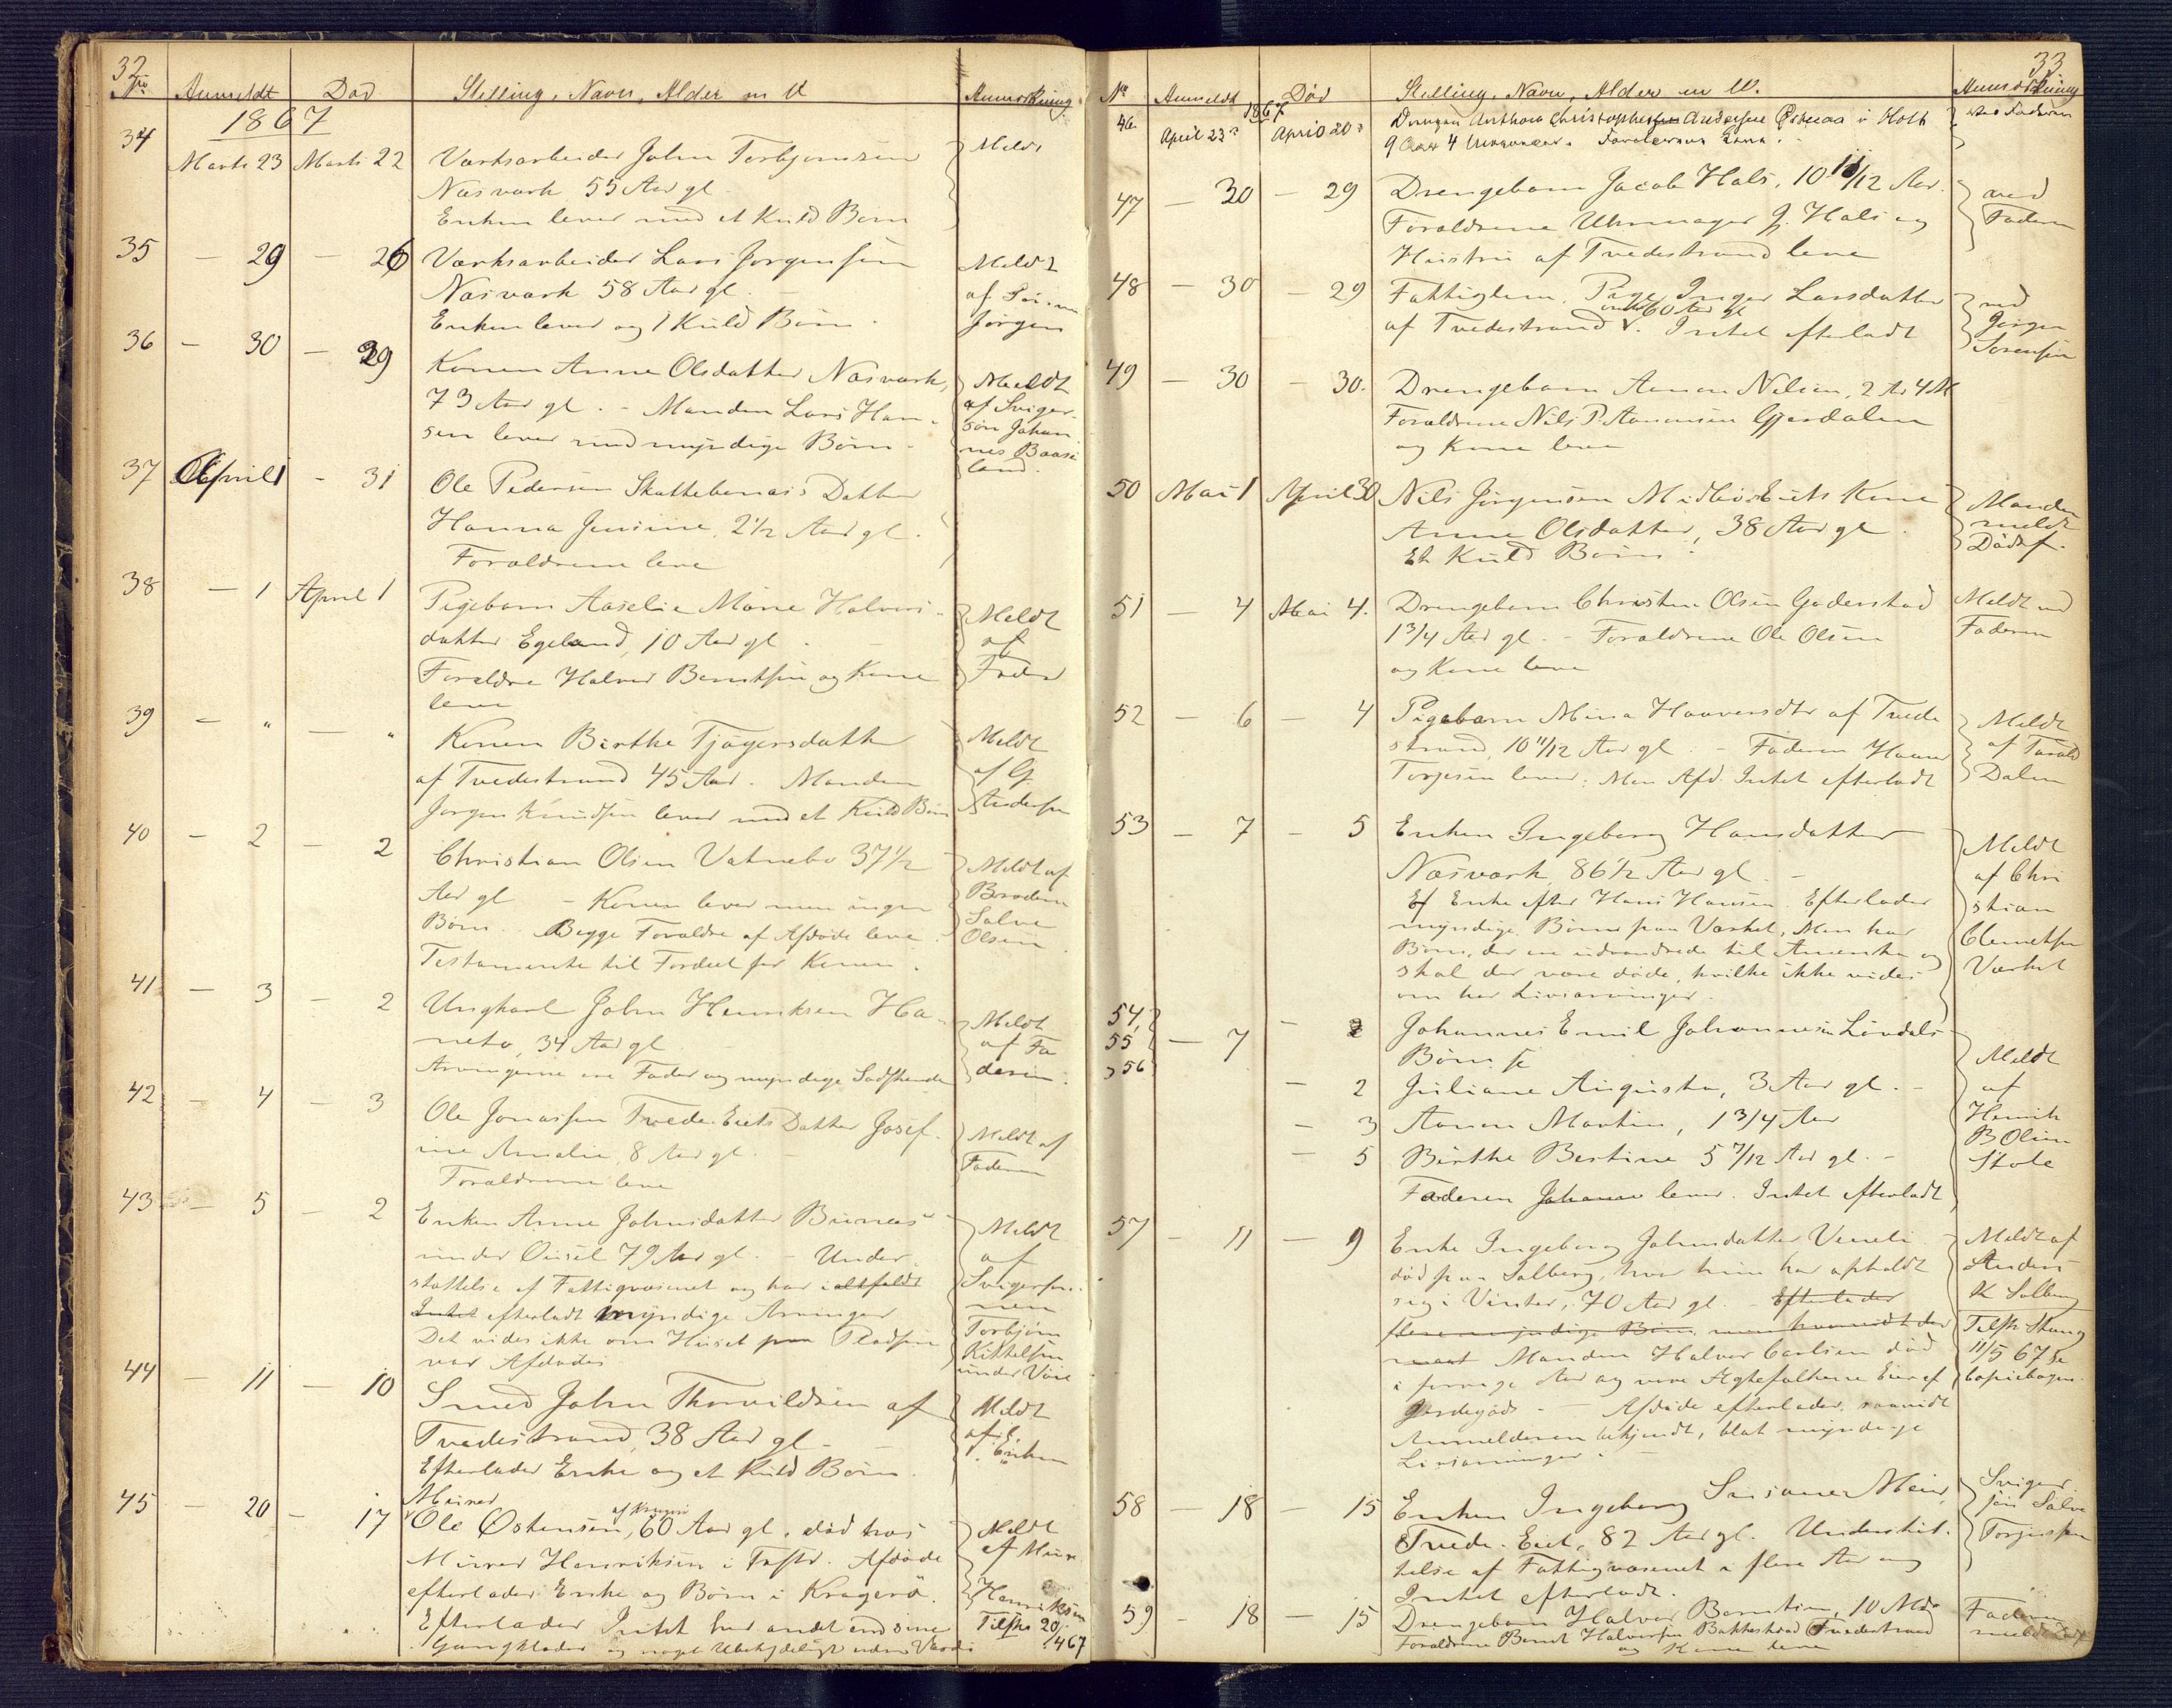 32
No Anmeldt Død Stilling, Navn, Alder m V Anmærkning
1867
34 Marts 23 Marts 22 Værksarbeider John Torbjørnsen Meldt
Næsværk 55 Aar gl
Enken lever med et Kuld Børn
35 — 29 — 26 Værksarbeider Lars Jørgensen Meldt
Næsværk 58 Aar gl. af
Enken lever og 1 Kuld Børn. Jørgen
36 — 30 — 29 Konen Anne Olsdatter Næsværk, Meldt
73 Aar gl. - Manden Lars Han- af Sviger-
sen lever med myndige Børn søn Johan-
nes Baase
land.
37 April 1 - 31 Ole Pedersen Skattebonais Datter
Hanna Jensine, 2 1/2 Aar gl.
Forældrene leve
38 — 1 April 1 Pigebarn Aaselie Marie Halvors- Meldt
datter Egeland, 10 Aar gl. af
Forældre Halvor Berntsen og Kone Fader
leve
39 — " — " Konen Birthe Tjøgersdatter Meldt
af Tvedestrand 45 Aar. Manden af G.
Jørgen Knudsen lever med et Kuld Børn Andersen
40 — 2 — 2 Christian Olsen Vatnebo 37 1/2 Meldt af
Aar gl - Konen lever men ingen Broderen
Børn. Begge Forældre af Afdøde leve. Salve
Testamente til Fordeel for Konen. Olsen
41 — 3 — 2 Ungkarl John Henriksen Ha- Meldt
neto, 34 Aar gl af Fa
Arvingerne ere Fader og myndige Sødskende deren.
42 — 4 — 3 Ole Jonassen Tvede Eiets Datter Josef- Meldt af
ine Amalie, 8 Aar gl. Faderen
Forældrene leve
43 — 5 — 2 Enken Anne Johnsdatter Bunæs Meldt
under 79 Aar gl. - Under- af
støttelse af Fattigvæsenet og har ialtfaldt Svigersøn-
Intet efterladt myndige Arvinger nen
Det vides ikke om Huset paa Pladsen Torbjørn
var Afdødes Kittelsen
under
44 — 11 — 10 Smed John Thorvildsen af Meldt
Tvedestrand, 38 Aar gl - af
Efterlader Enke og et Kuld Børn. Enken
45 — 20 — 17 Murer
Ole Østensen, 60 Aar gl. død hos Meldt
Murer Henriksen i Tvstr. Afdøde af Murer
efterlader Enke og Børn i Kragerø. Henriksen
Efterlader Intet her andet end sine Tilsk 20/
Gangklæder og noget Ubetydeligt uden Værdi. 467
33
No Anmeldt Død Stilling, Navn, Alder m V. Anmærkning
1867
46. April 23de April 20de Drengen Anthon Christophersen Andersen Østeraa i Holt ved Faderen
9 Aar 4 Maaneder. Forældrene leve.
47 — 30 — 29 Drengebarn Jacob Hals, 10 11/12 Aar. ved
Forældrene Uhrmager J. Hals og Faderen
Hustru af Tvedestrand leve
48 — 30 — 29 Fattiglem, Pige Inger Larsdatter ved
omtr 60 Aar gl Jørgen
af Tvedestrand. Intet efterladt Sørensen
49 — 30 — 30. Drengebarn Aanon Nilsen, 2 Ar 4 M
Forældrene Nils P. Aanonsen Gjerdalen
og Kone leve
50 Mai 1 April 30 Nils Jørgensen Midbøe Eiets Kone Manden
Anne Olsdatter, 38 Aar gl. meldt
Et Kuld Børn. Dødsf.
51 — 4 Mai 4. Drengebarn Christen Olsen Goderstad Meldt ved
1 3/4 Aar gl. - Forældrene Ole Olsen Faderen
og Kone leve
52 — 6 — 4 Pigebarn Mina Haaversdtr af Tvede Meldt
strand, 10 11/12 Aar gl. - Faderen Haaver af Tarald
Torjesen lever. Men Afd. Intet efterladt Dalen
53 — 7 — 5 Enken Ingeborg Hansdatter Meldt
Næsværk, 86 1/2 Aar gl. - af Chri
Ef Enke efter Hans Hansen. Efterlader stian
myndige Børn paa Værket, Men har Clemetsen
Børn, der ere udvandrede til Amerika og Værket
skal der være døde, hvilke ikke vides
om har Livsarvinger.
54, — 7 — 2 Johannes Emil Johannesen Løvdals
55 Børn
56 — 2 Juliane Augusta, 3 Aar gl. - Meldt
— 3 Aanon Martin, 1 3/4 Aar af
— 5 Birthe Bertine 5 7/12 Aar gl. - Henrik
Faderen Johannes lever. Intet efterladt B Olsen
Skole
57 — 11 — 9 Enke Ingeborg Johnsdatter Meldt af
død paa Solberg, hvor hun har opholdt Anders
sig i Vinter, 70 Aar gl. - Efterlader K Solberg
flere myndige Børn Tilsk
Manden Halvor Carlsen død 11/5 67 se
i forrige Aar og vare Ægtefolkene Eier af Copiebogen.
Jordegods. - Afdøde efterlader, saavidt
Anmelderen bekjendt, blot myndige
Livsarvinger.
58 — 18 — 15 Enken Ingeborg Susanne Sviger
Tvede Eiet, 82 Aar gl. Understøt- søn Salve
telse af Fattigvæsenet i flere Aar og Torjussen
Intet efterladt.
59 — 18 — 15 Drengebarn Halvor Berntsen, 10 Md. Faderen
Forældrene Bernt Halvorsen Bakkestrad Tvedestrand
og Kone leve